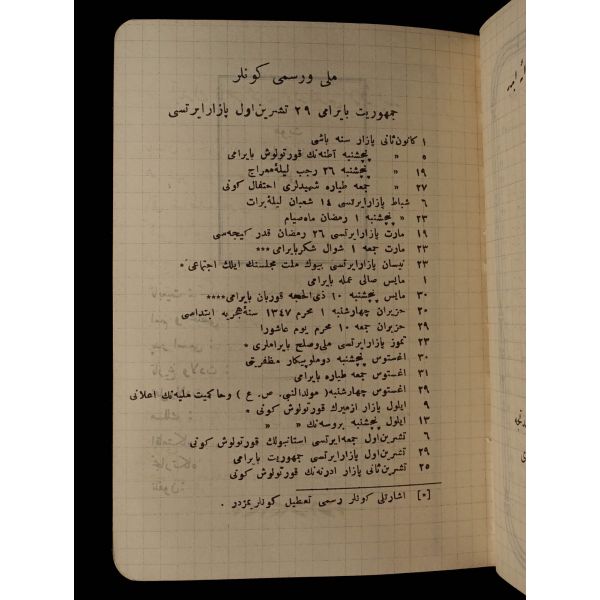 ملی و رسمی کونلر
جمهوریت بایرامی ٢٩ تشرین اول پازار ایرتسی
١ کانون ثانی پازار سنه باشی
٥ » پنچشنبه آطنه‌نك قورتولوش بایرامی
١٩ » پنچشنبه ٢٦ رجب لیلۀ معراج
٢٧ » جمعه طیاره شهیدلری احتفال کونی
٦ شباط پازار ایرتسی ١٤ شعبان لیلۀ برات
٢٣ » پنچشنبه ١ رمضان ماه صیام
١٩ مارت پازار ایرتسی ٢٦ رمضان قدر کیجه‌سی
٢٣ مارت جمعه ١ شوال شکر بایرامی ***
٢٣ نیسان پازار ایرتسی بیوك ملت مجلسنك ایلك اجتماعی *
١ مایس صالی عمله بایرامی
٣٠ مایس پنچشنبه ١٠ ذی الحجه قوربان بایرامی ****
٢٠ حزیران چهارشنبه ١ محرم ١٣٤٧ سنۀ هجریه ابتداسی
٢٩ حزیران جمعه ١٠ محرم یوم عاشورا
٢٣ تموز پازار ایرتسی ملی و صلح بایراملری *
٣٠ اغستوس پنچشنبه دوملوپیکار مظفریتی
٣١ اغستوس جمعه طیاره بایرامی
٢٩ اغستوس چهارشنبه ( مولد النبی . ص . ع ) و حاکمیت ملیه‌نك اعلانی
٩ ایلول پازار ازمیرك قورتولوش کونی *
١٣ ایلول پنچشنبه بروسه‌نك » »
٦ تشرین اول جمعه ایرتسی استانبولك قورتولوش کونی
٢٩ تشرین اول پازار ایرتسی جمهوریت بایرامی
٢٥ تشرین ثانی پازار ادرنه‌نك قورتولوش کونی
[*] اشارتلی کونلر رسمی تعطیل کونلریمزدر .